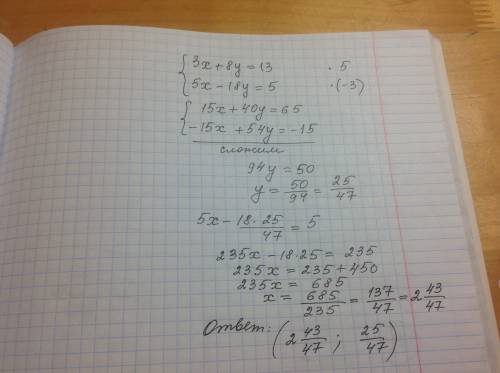 { 3x + 8y = 13 · 5
{ 5x − 18y = 5 · (−3)
{ 15x + 40y = 65
{ −15x + 54y = −15
сложим
94y = 50
y = 50/94 = 25/47
5x − 18·25/47 = 5
235x − 18·25 = 235
235x = 235 + 450
235x = 685
x = 685/235 = 137/47 = 2 43/47
Ответ: (2 43/47 ; 25/47)